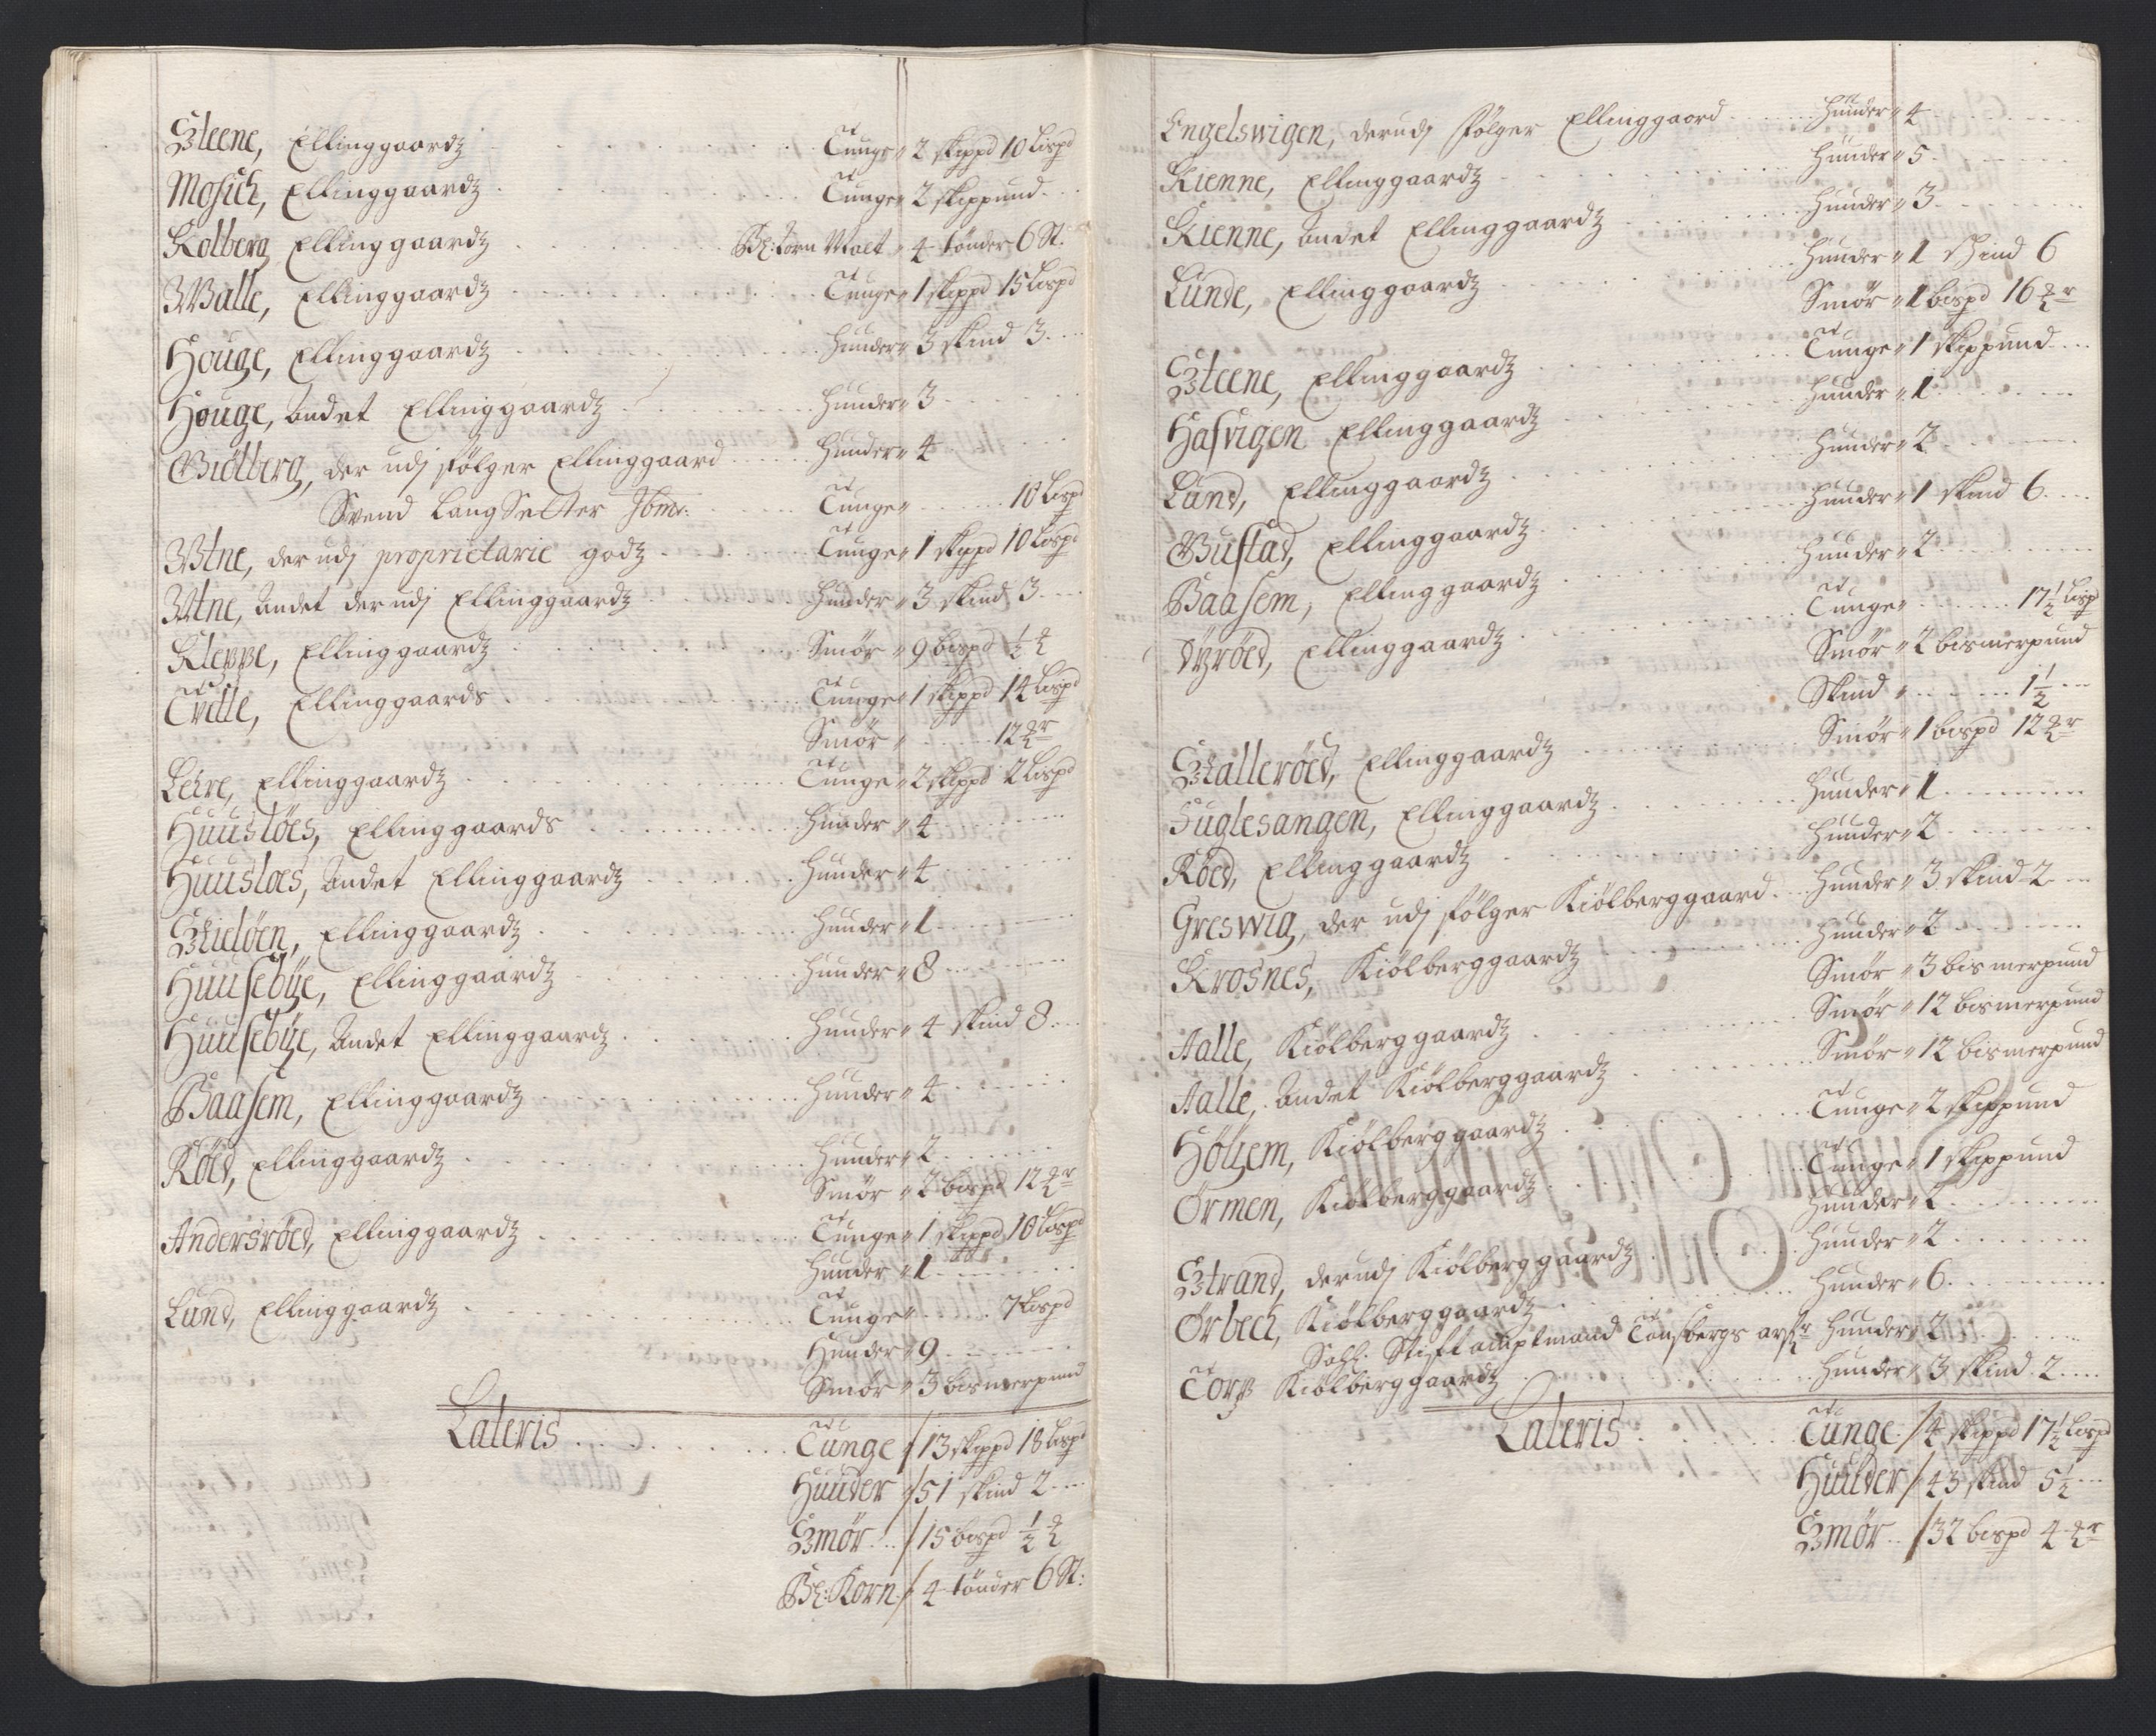 Steene, Ellinggaardz Tunge 2 skippd 10 Lispd
Mosich, Ellinggaardz Tunge 2 skippund
Kolberg Ellinggaardz Bl: Korn Malt 4 tönder 6 St:
Walle, Ellinggaardz Tunge 1 skippd 15 Lispd
Houge, Ellinggaardz Huuder 3 skind 3
Houge, Andet Ellinggaardz Huuder 3
Giölberg, der udj følger Ellinggaard Huuder 4
Svend LangSetter Ibm: Tunge 10 Lispd
Wtne, der udj proprietarie godz Tunge 1 skippd 10 Lispd
Wtne, Andet derudj Ellinggaardz Huuder 3 skind 3
Kleppe, Ellinggaardz Smör 9 bispd ½ ℔
Tvitte, Ellinggaards Tunge 1 skippd 14 Lispd
Smör 12 ℔r
Lehre, Ellinggaardz Tunge 2 skippd 2 Lispd
Huusløes, Ellinggaards Huuder 4
Huusloes, Andet Ellinggaardz Huuder 4
Skieløen, Ellinggaardz Huuder 1
Huusebÿe, Ellinggaardz Huuder 8
Huusebÿe, Andet Ellinggaardz Huuder 4 skind 8
Baasem, Ellinggaardz Huuder 4
Röed, Ellinggaardz Huuder 2
Smör 2 bispd 12 ℔r
Andersröed, Ellinggaardz Tunge 1 skippd 10 Lispd
Huuder 1
Lund, Ellinggaardz Tunge 7 Lispd
Huuder 9
Smör 3 bismerpund
Lateris Tunge / 13 skippd 18 Lispd
Huuder / 51 skind 2
Smør / 15 bispd ½ ℔
Bl: Korn / 4 tönder 6 St:
Engelswigen, derudj følger Ellinggaard Huuder 4
Kienne, Ellinggaardz Huuder 5
Kienne, Andet Ellinggaardz Huuder 3
Lunde, Ellinggaardz Huuder 1 skind 6
Smör 1 bispd 16 ℔r
Steene, Ellinggaardz Tunge 1 skippund
Hafvigen Ellinggaardz Huuder 1
Lund, Ellinggaardz Huuder 2
Bustad, Ellinggaardz Huuder 1 skind 6
Baasem, Ellinggaardz Huuder 2
Dÿröed, Ellinggaardz Tunge 17½ Lisp
Smör 2 bismerpund
Skind 1½
Skalleröed, Ellinggaardz Smör 1 bispd 12 ℔r
Fuglesangen, Ellinggaardz Huuder 1
Röed, Ellinggaardz Huuder 2
Greswig, der udj følger Kiölberggaard Huuder 3 skind 2
Krosnes, Kiölberggaardz Huuder 2
Smör 3 bismerpund
Aalle, Kiölberggaardz Smör 12 bismerpund
Aalle, Andet Kiölberggaardz Smör 12 bismerpund
Hölÿem, Kiölberggaardz Tunge 2 skippund
Ørmen, Kiölberggaardz Tunge 1 skippund
Huuder 2
Strand, derudj Kiölberggaardz Huuder 2
Ørbech, Kiölberggaardz Huuder 6
Sahl. Stiftamptmand Tonsbergs arf Huuder 2
Torp Kiölberggaardz Huuder 3 skind 2
Lateris Tunge / 4 skippd 17½ Lispd
Huuder / 43 skind 5½
Smør / 32 bispd 4 ℔r